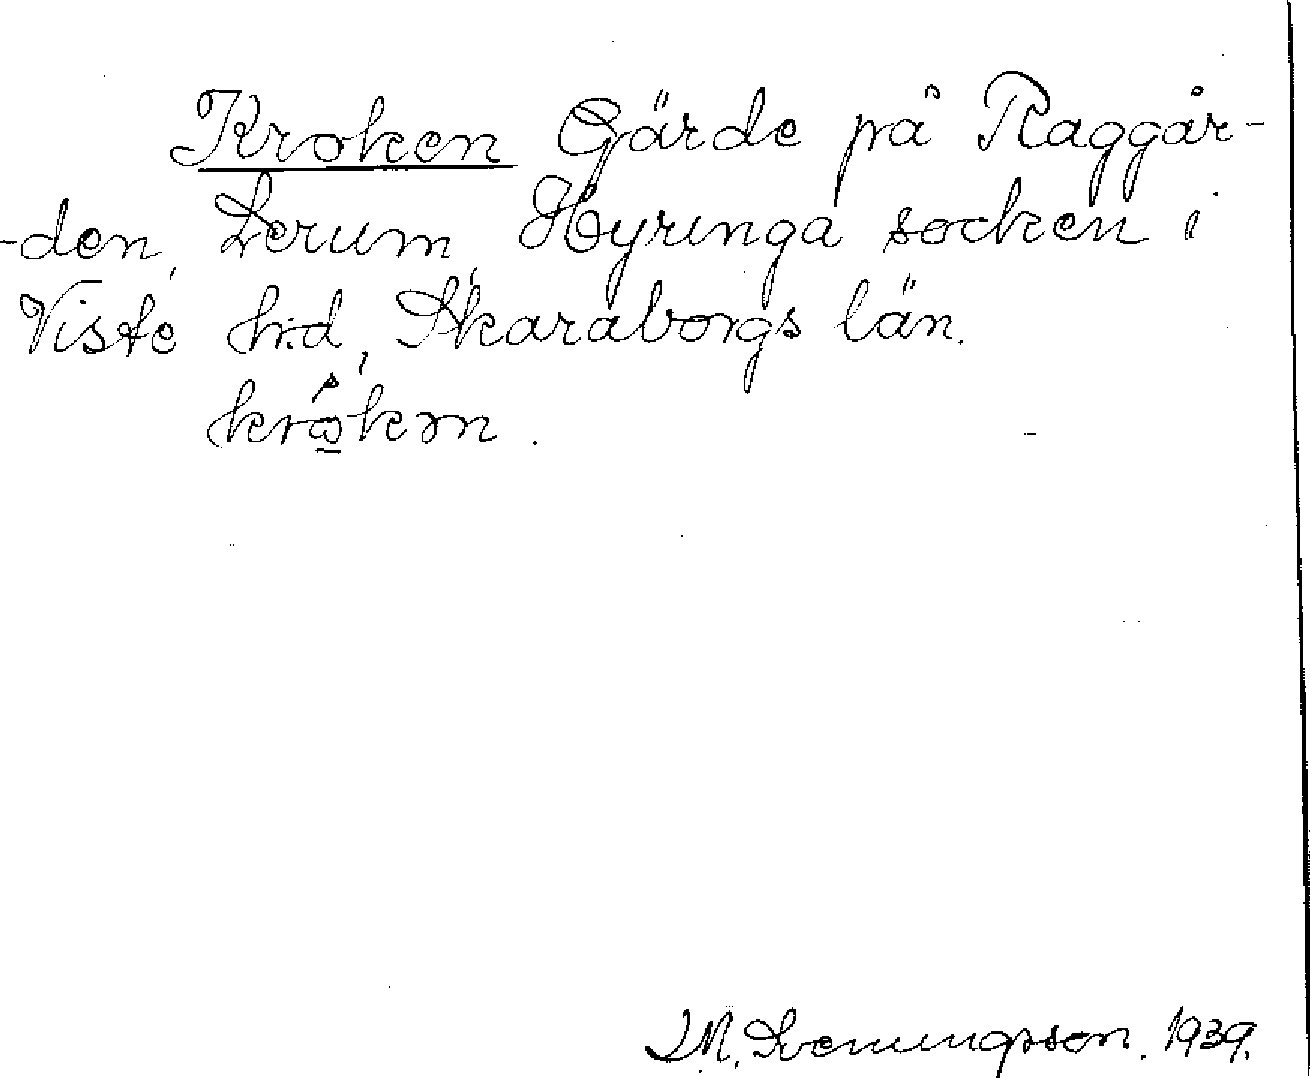 Kroken Gärde på Raggår-
-den, Lerum, Hyringa socken i
Viste h:d, Skaraborgs län.
krökem.
J.M. 1939.